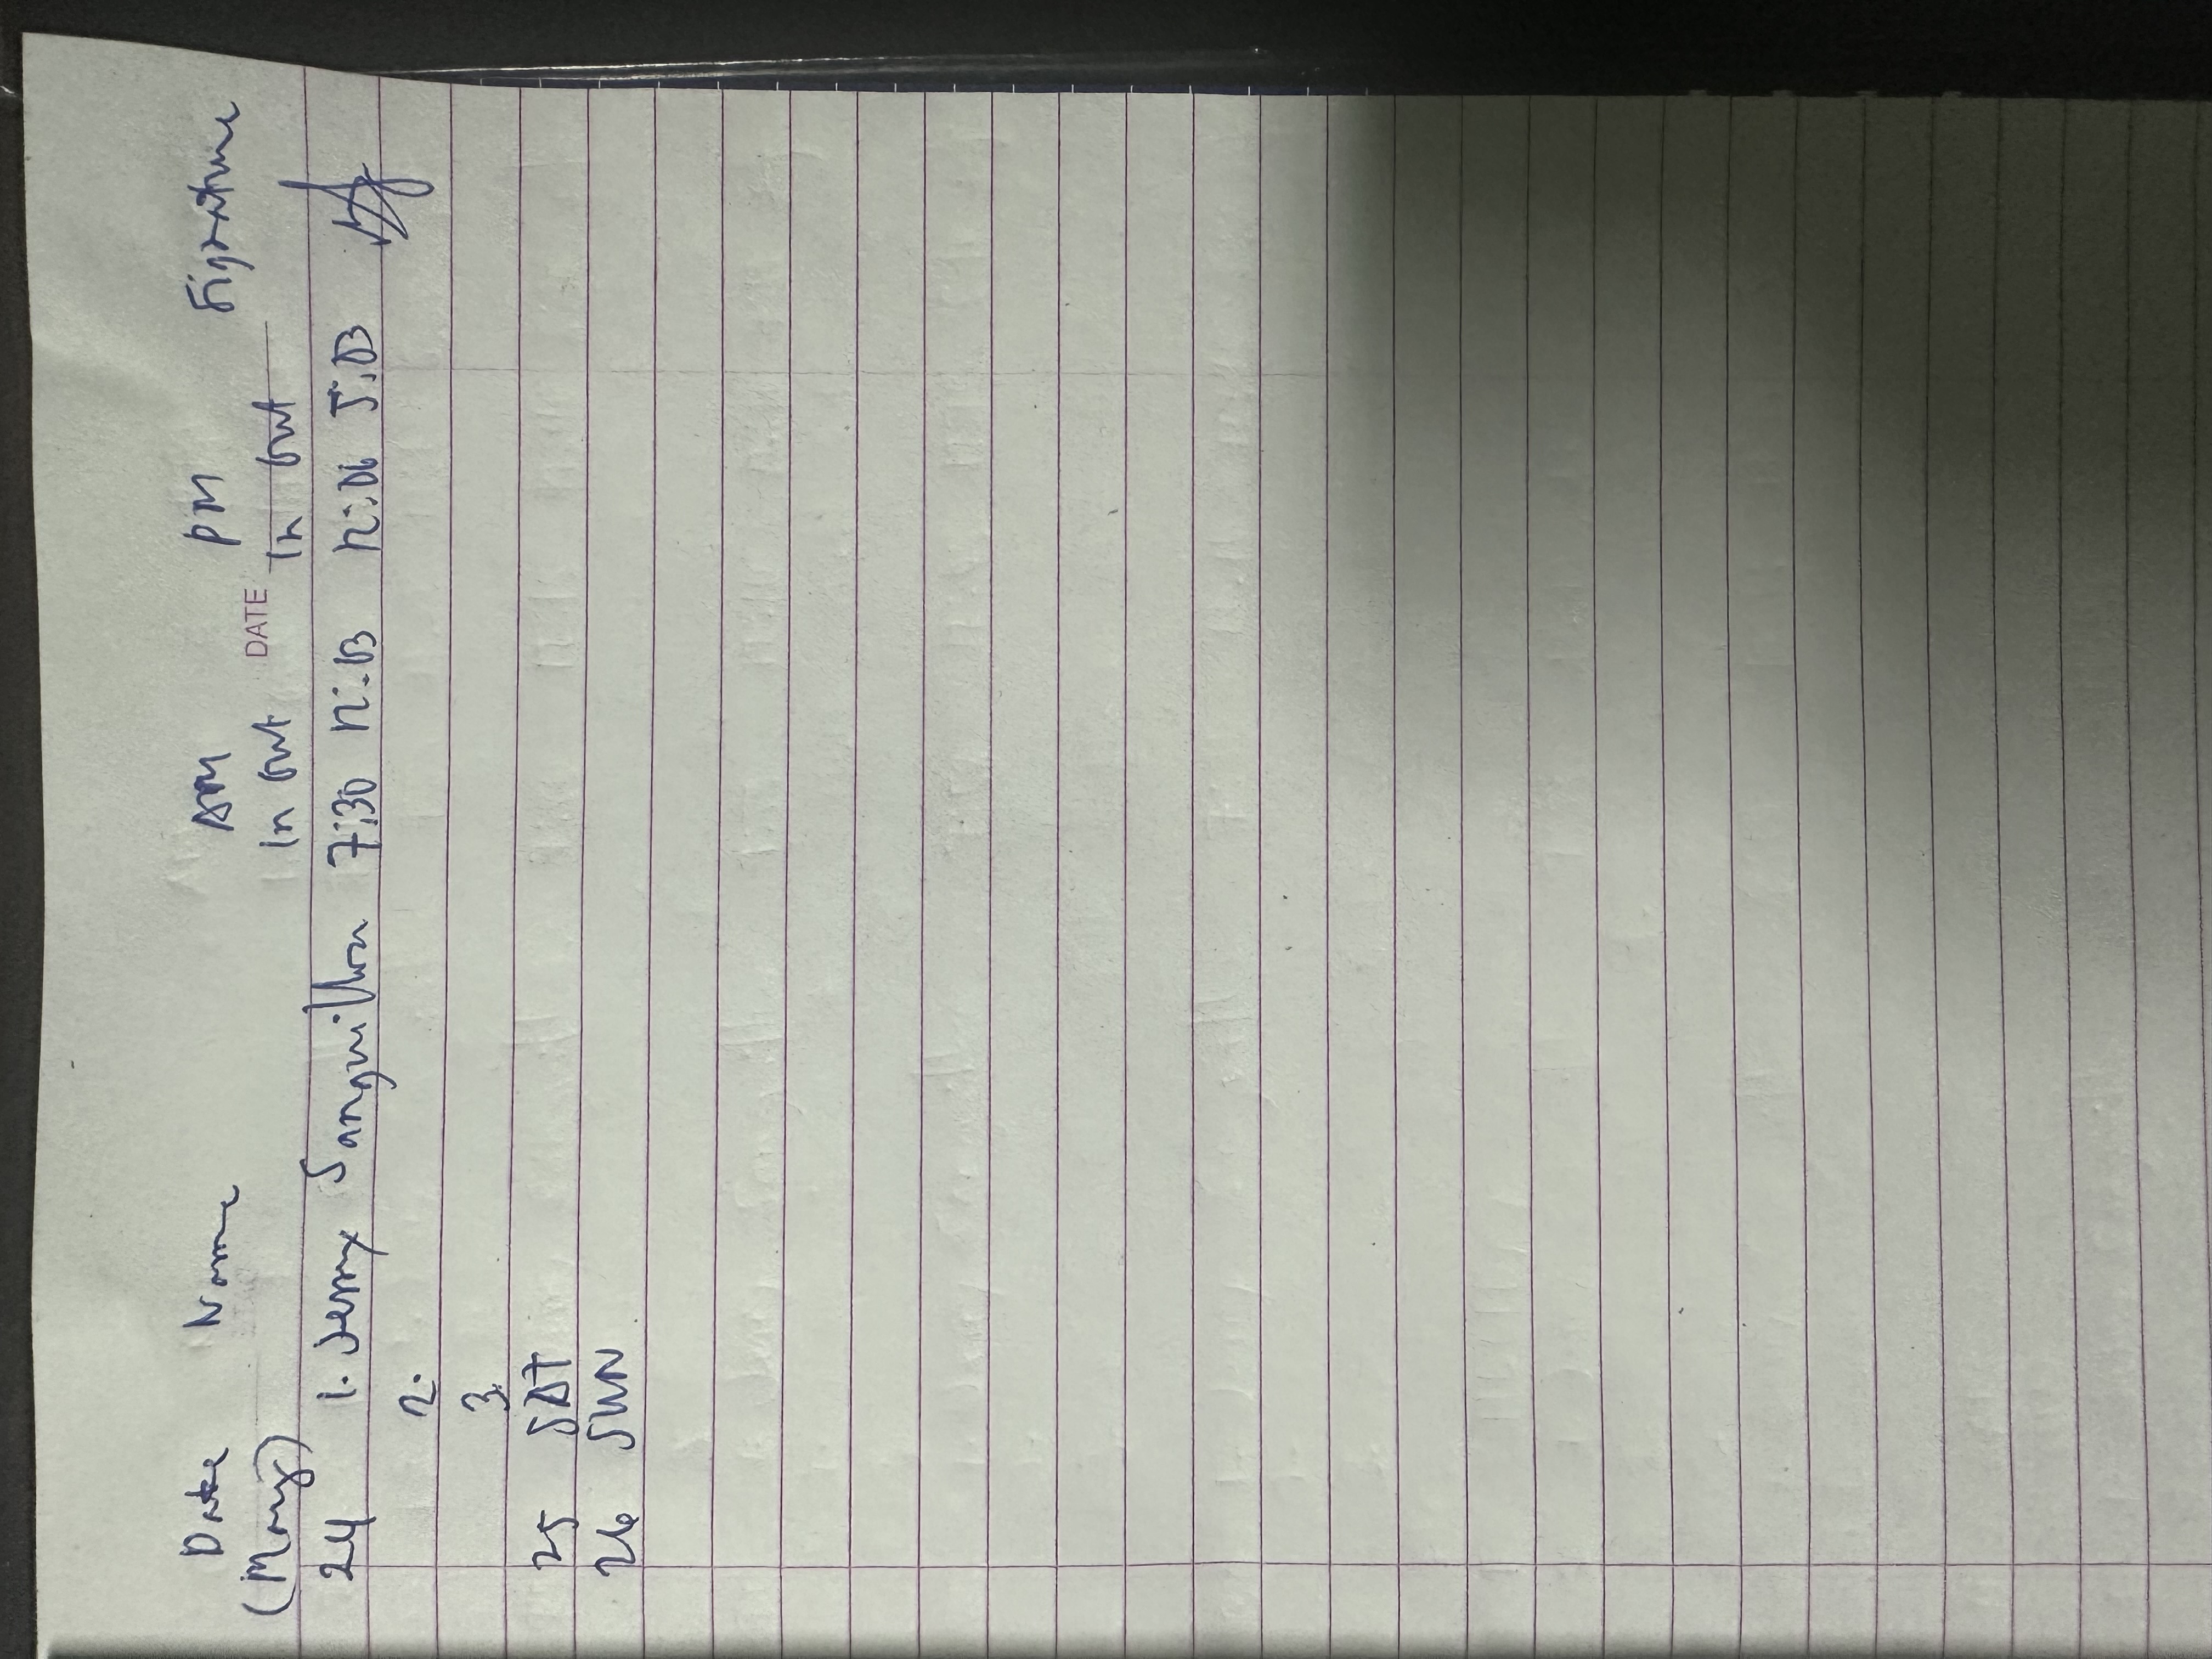 Date Name AM PM Signature
(May) In Out DATE In Out
24 1. Jerry Sanquillon 7:30 12:03 12:06 5:03
2.
3.
25 SAT
26 SUN